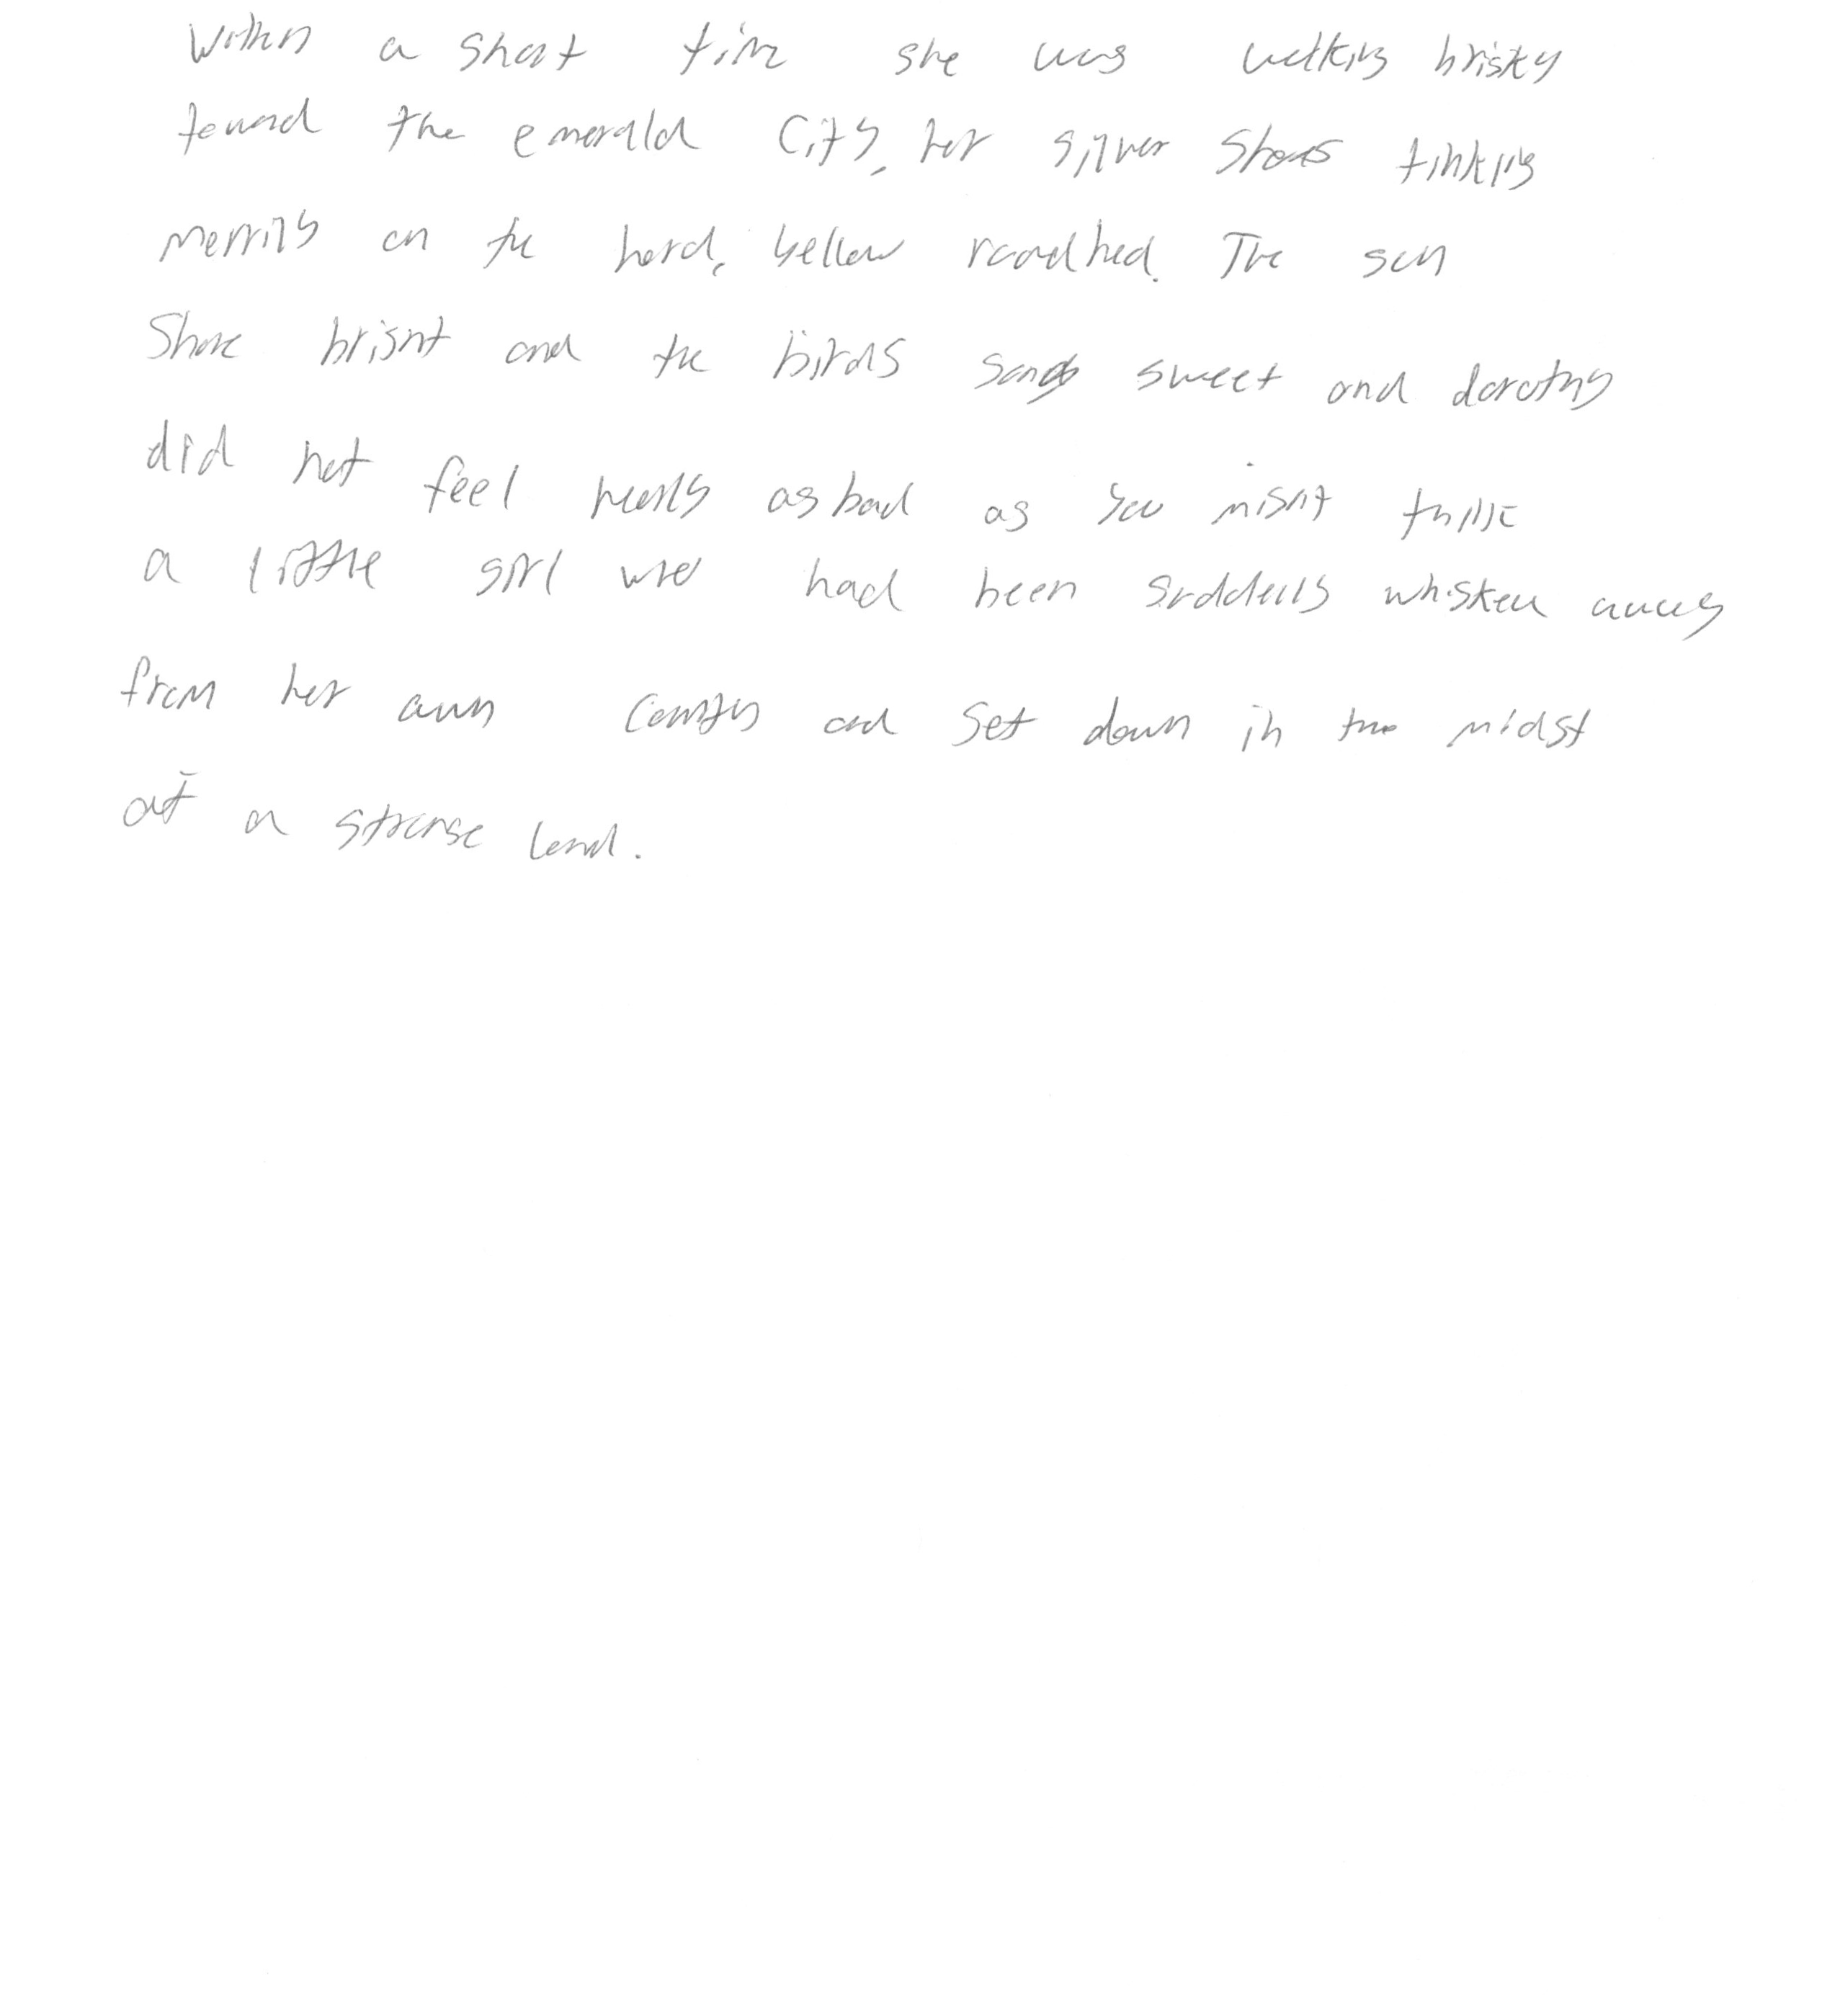 Within a short time she was walking briskly
toward the emerald City, her silver shoes tinkling
merrily on the hard, yellow roadbed. The sun
Shone bright and the birds sang sweet and dorothy
did not feel nearly as bad as you might think
a little girl who had been suddenly whisked away
from her own country and set down in the midst
of a strange land.